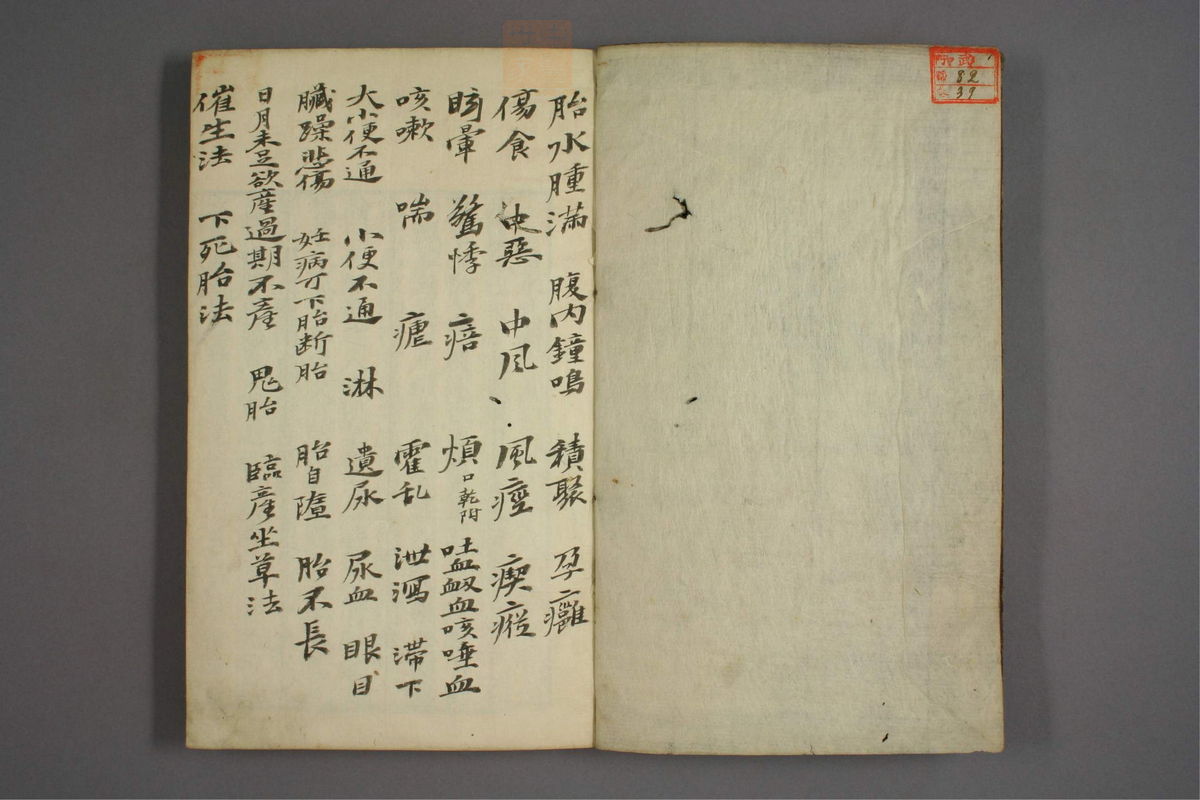 胎水腫満 腹内鐘鳴 積聚 孕癰
傷食 中惡 中風 風痙 瘈瘲
眩暈 驚悸 痞 煩口乾附 吐血衂血咳唾血
咳嗽 喘 瘧 霍乱 泄瀉 滞下
大小便不通 小便不通 淋 遺尿 尿血 眼目
臓躁悲傷 妊病可下胎断胎 胎自墮 胎不長
日月未足欲産過期不産 鬼胎 臨産坐草法
催生法 下死胎法
82
39